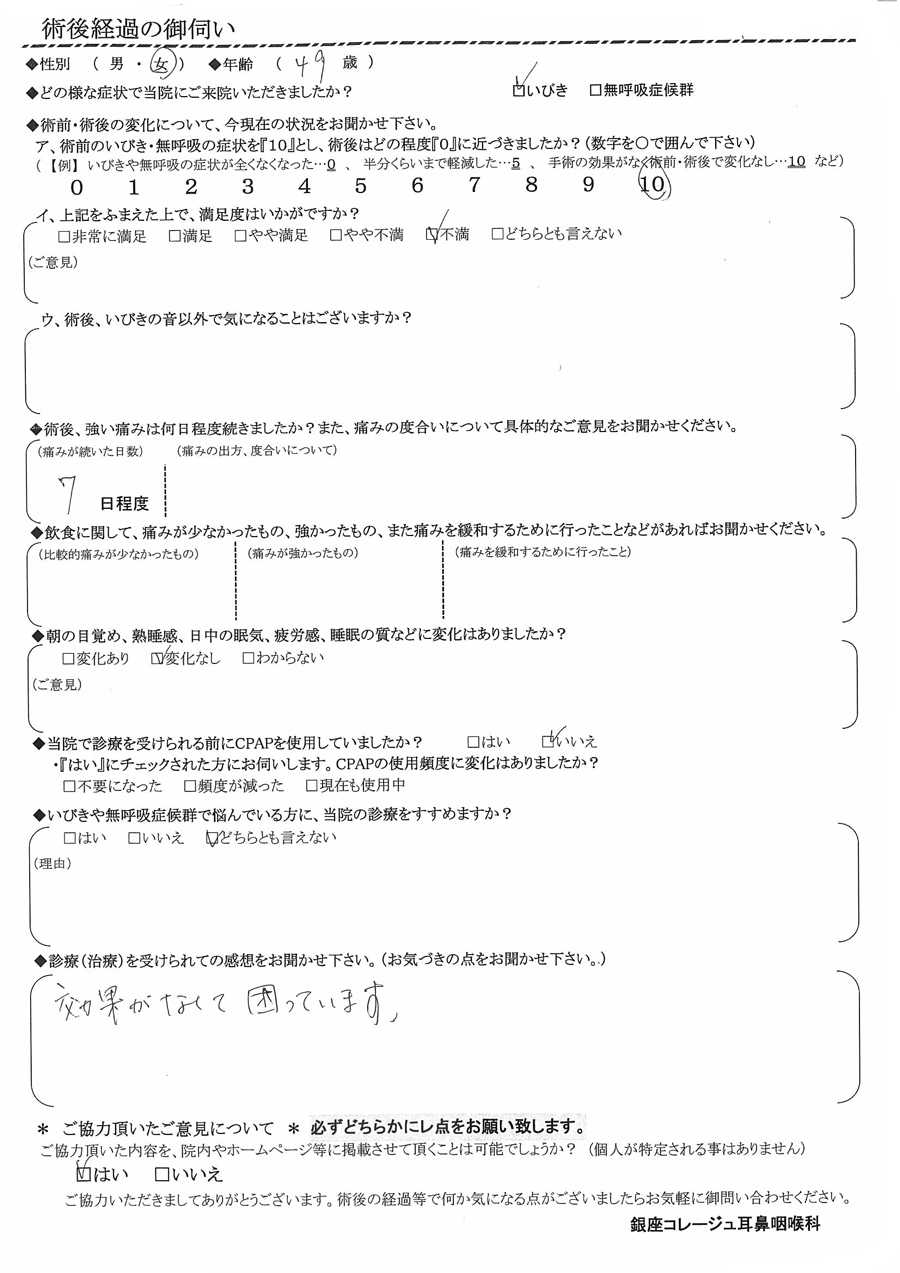 術後経過の御伺い
◆性別 ( 男 ・ 女 ) ◆年齢 ( 49 歳 )
◆どの様な症状で当院にご来院いただきましたか? ☑いびき □無呼吸症候群
◆術前・術後の変化について、今現在の状況をお聞かせ下さい。
ア、術前のいびき・無呼吸の症状を『10』とし、術後はどの程度『0』に近づきましたか?(数字を○で囲んで下さい)
(【例】 いびきや無呼吸の症状が全くなくなった…0 、 半分くらいまで軽減した…5 、 手術の効果がなく術前・術後で変化なし…10 など)
0 1 2 3 4 5 6 7 8 9 10
イ、上記をふまえた上で、満足度はいかがですか?
□非常に満足 □満足 □やや満足 □やや不満 ☑不満 □どちらとも言えない
(ご意見)
ウ、術後、いびきの音以外で気になることはございますか?
◆術後、強い痛みは何日程度続きましたか?また、痛みの度合いについて具体的なご意見をお聞かせください。
(痛みが続いた日数) (痛みの出方、度合いについて)
7 日程度
◆飲食に関して、痛みが少なかったもの、強かったもの、また痛みを緩和するために行ったことなどがあればお聞かせください。
(比較的痛みが少なかったもの) (痛みが強かったもの) (痛みを緩和するために行ったこと)
◆朝の目覚め、熟睡感、日中の眠気、疲労感、睡眠の質などに変化はありましたか?
□変化あり ☑変化なし □わからない
(ご意見)
◆当院で診療を受けられる前にCPAPを使用していましたか? □はい ☑いいえ
・『はい』にチェックされた方にお伺いします。CPAPの使用頻度に変化はありましたか?
□不要になった □頻度が減った □現在も使用中
◆いびきや無呼吸症候群で悩んでいる方に、当院の診療をすすめますか?
□はい □いいえ ☑どちらとも言えない
(理由)
◆診療(治療)を受けられての感想をお聞かせ下さい。(お気づきの点をお聞かせ下さい。)
効果がなくて困っています。
* ご協力頂いたご意見について * 必ずどちらかにレ点をお願い致します。
ご協力頂いた内容を、院内やホームページ等に掲載させて頂くことは可能でしょうか? (個人が特定される事はありません)
☑はい □いいえ
ご協力いただきましてありがとうございます。術後の経過等で何か気になる点がございましたらお気軽に御問い合わせください。
銀座コレージュ耳鼻咽喉科